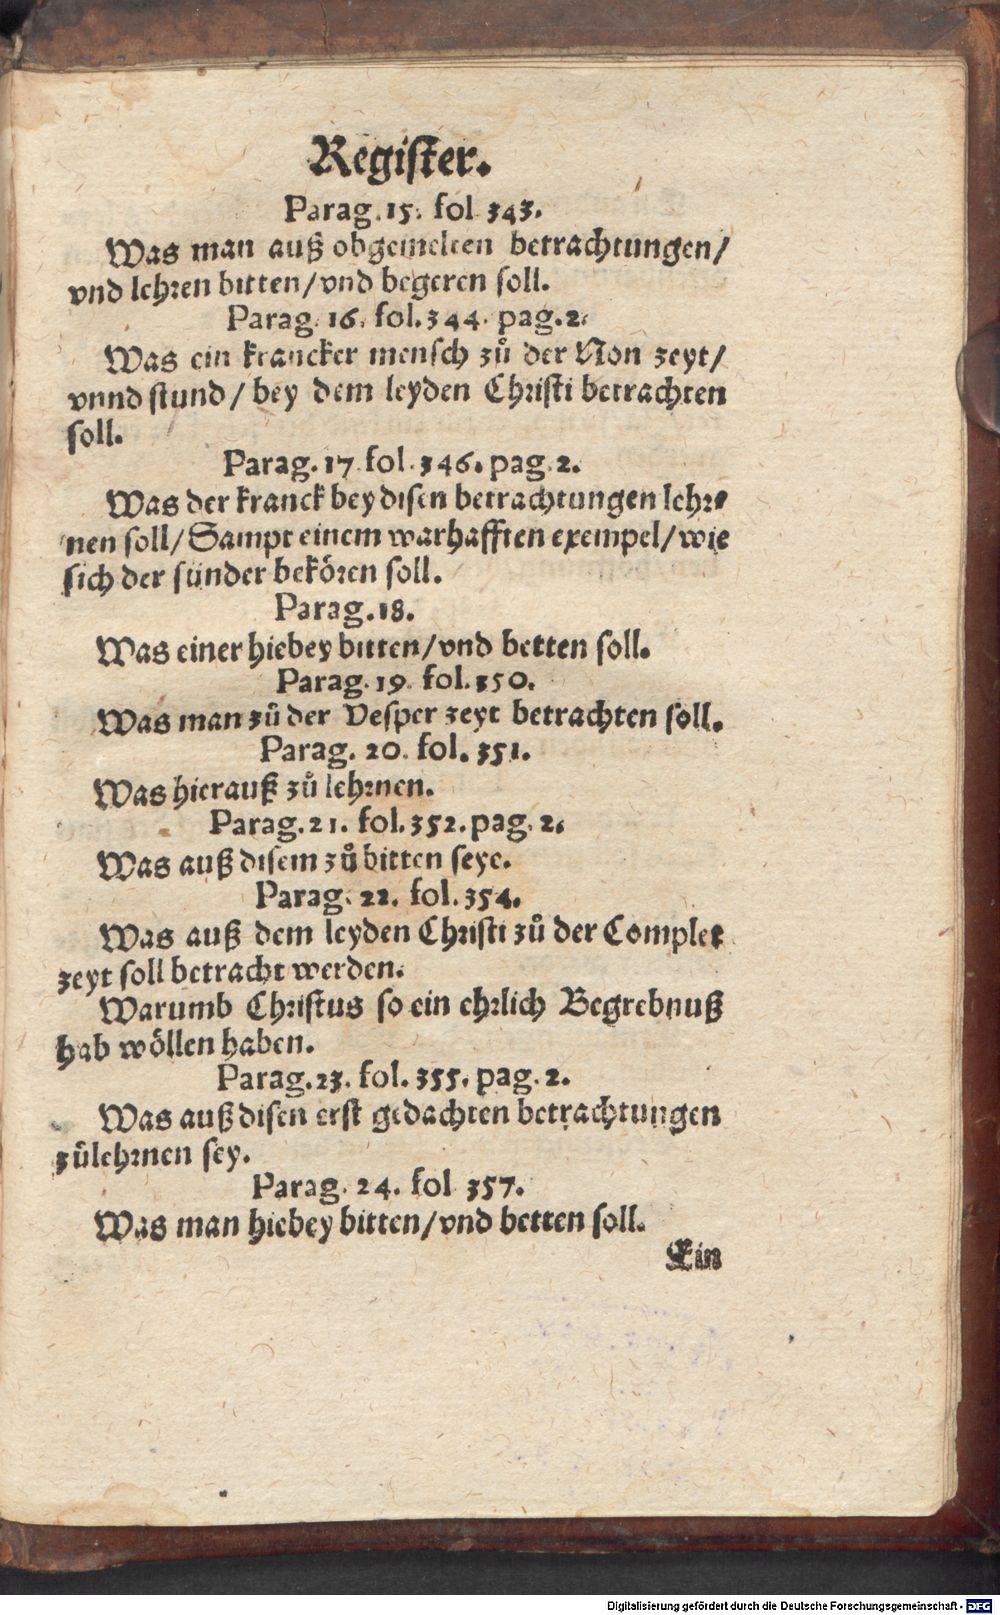 Register.
Parag. 15. fol 343.
Was man auß obgemelten betrachtungen/
vnd lehren bitten/vnd begeren soll.
Parag. 16. fol. 344. pag. 2.
Was ein krancker mensch zů der Non zeyt/
vnnd stund / bey dem leyden Christi betrachten
soll.
Parag. 17 fol. 346. pag. 2.
Was der kranck bey disen betrachtungen lehr-
nen soll/ Sampt einem warhafften exempel/ wie
sich der sünder bekören soll.
Parag. 18.
Was einer hiebey bitten/vnd betten soll.
Parag. 19. fol. 350.
Was man zů der Vesper zeyt betrachten soll.
Parag. 20. fol. 351.
Was hierauß zů lehrnen.
Parag. 21. fol. 352. pag. 2.
Was auß disem zů bitten seye.
Parag. 22. fol. 354.
Was auß dem leyden Christi zů der Complet
zeyt soll betracht werden.
Warumb Christus so ein ehrlich Begrebnuß
hab wöllen haben.
Parag. 23. fol. 355. pag. 2.
Was auß disen erst gedachten betrachtungen
zůlehrnen sey.
Parag. 24. fol 357.
Was man hiebey bitten/vnd betten soll.
Ein
Digitalisierung gefördert durch die Deutsche Forschungsgemeinschaft - DFG